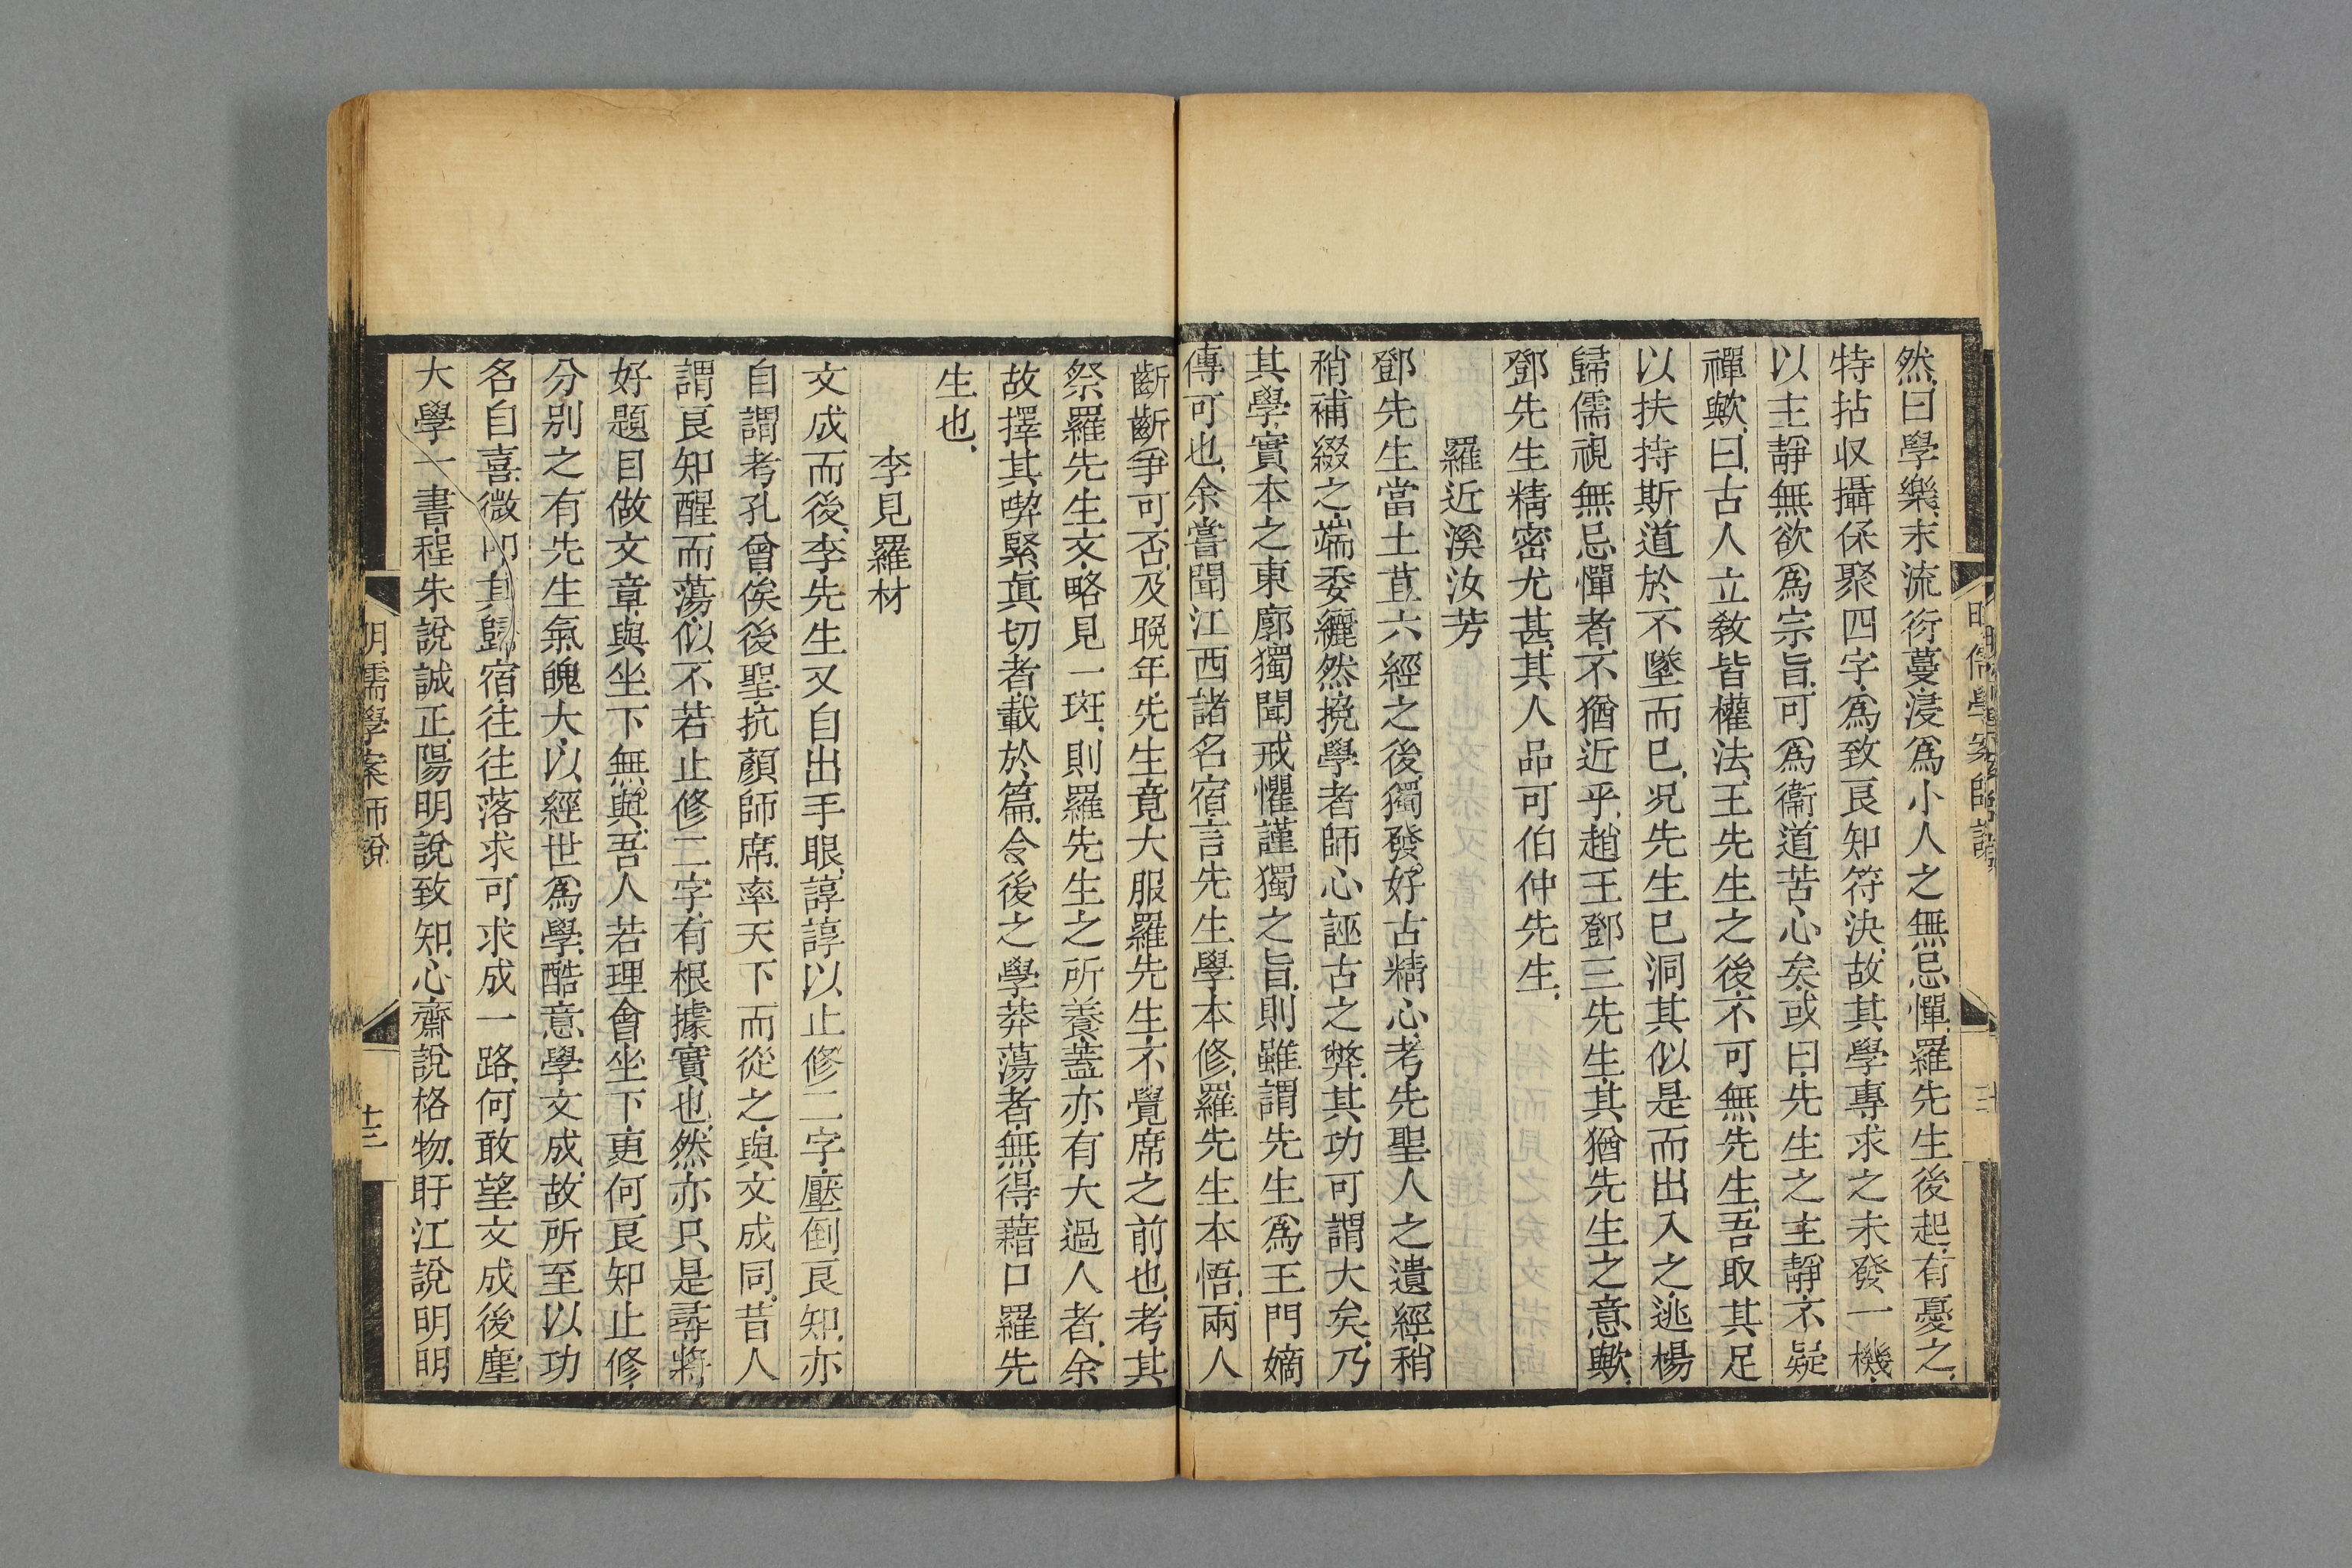 然、曰學樂、末流衍蔓、浸爲小人之無忌憚、羅先生後起、有憂之、
特拈收攝保聚四字、爲致良知符決、故其學專求之未發一機、
以主靜無欲爲宗旨、可爲衞道苦心矣、或曰、先生之主靜、不疑
禪歟、曰、古人立教、皆權法、王先生之後、不可無先生、吾取其足
以扶持斯道於不墜而已、况先生已洞其似是而出入之、逃楊
歸儒、視無忌憚者、不猶近乎、趙王鄧三先生、其猶先生之意歟、
鄧先生精密尤甚、其人品可伯仲先生、
羅近溪汝芳
鄧先生當土苴六經之後、獨發好古精心、考先聖人之遺經、稍
稍補綴之、端委纚然、挽學者師心誣古之弊、其功可謂大矣、乃
其學、實本之東廓、獨聞戒懼謹獨之旨、則雖謂先生爲王門嫡
傳可也、余嘗聞江西諸名宿言先生學本修、羅先生本悟、兩人
齗齗爭可否、及晚年、先生竟大服羅先生、不覺席之前也、考其
祭羅先生文、略見一斑、則羅先生之所養、葢亦有大過人者、余
故擇其喫緊眞切者、載於篇、令後之學莽蕩者、無得藉口羅先
生也、
李見羅材
文成而後、李先生又自出手眼、諄諄以止修二字、壓倒良知、亦
自謂考孔曾、俟後聖、抗顏師席、率天下而從之、與文成同、昔人
謂良知醒而蕩、似不若止修二字、有根據實也、然亦只是尋將
好題目做文章、與坐下無與、吾人若理會坐下、更何良知止修、
分别之有、先生氣魄大、以經世爲學、酷意學文成、故所至以功
名自喜、微叩其歸宿、往往落求可求成一路、何敢望文成後塵
大學一書、程朱說誠正、陽明說致知、心齋說格物、盱江說明明
明儒學案師說
十三